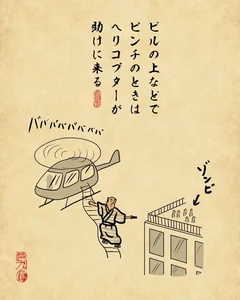 ビルの上などで
ピンチのときは
ヘリコプターが
助けに来る
バババババババ
ゾンビ